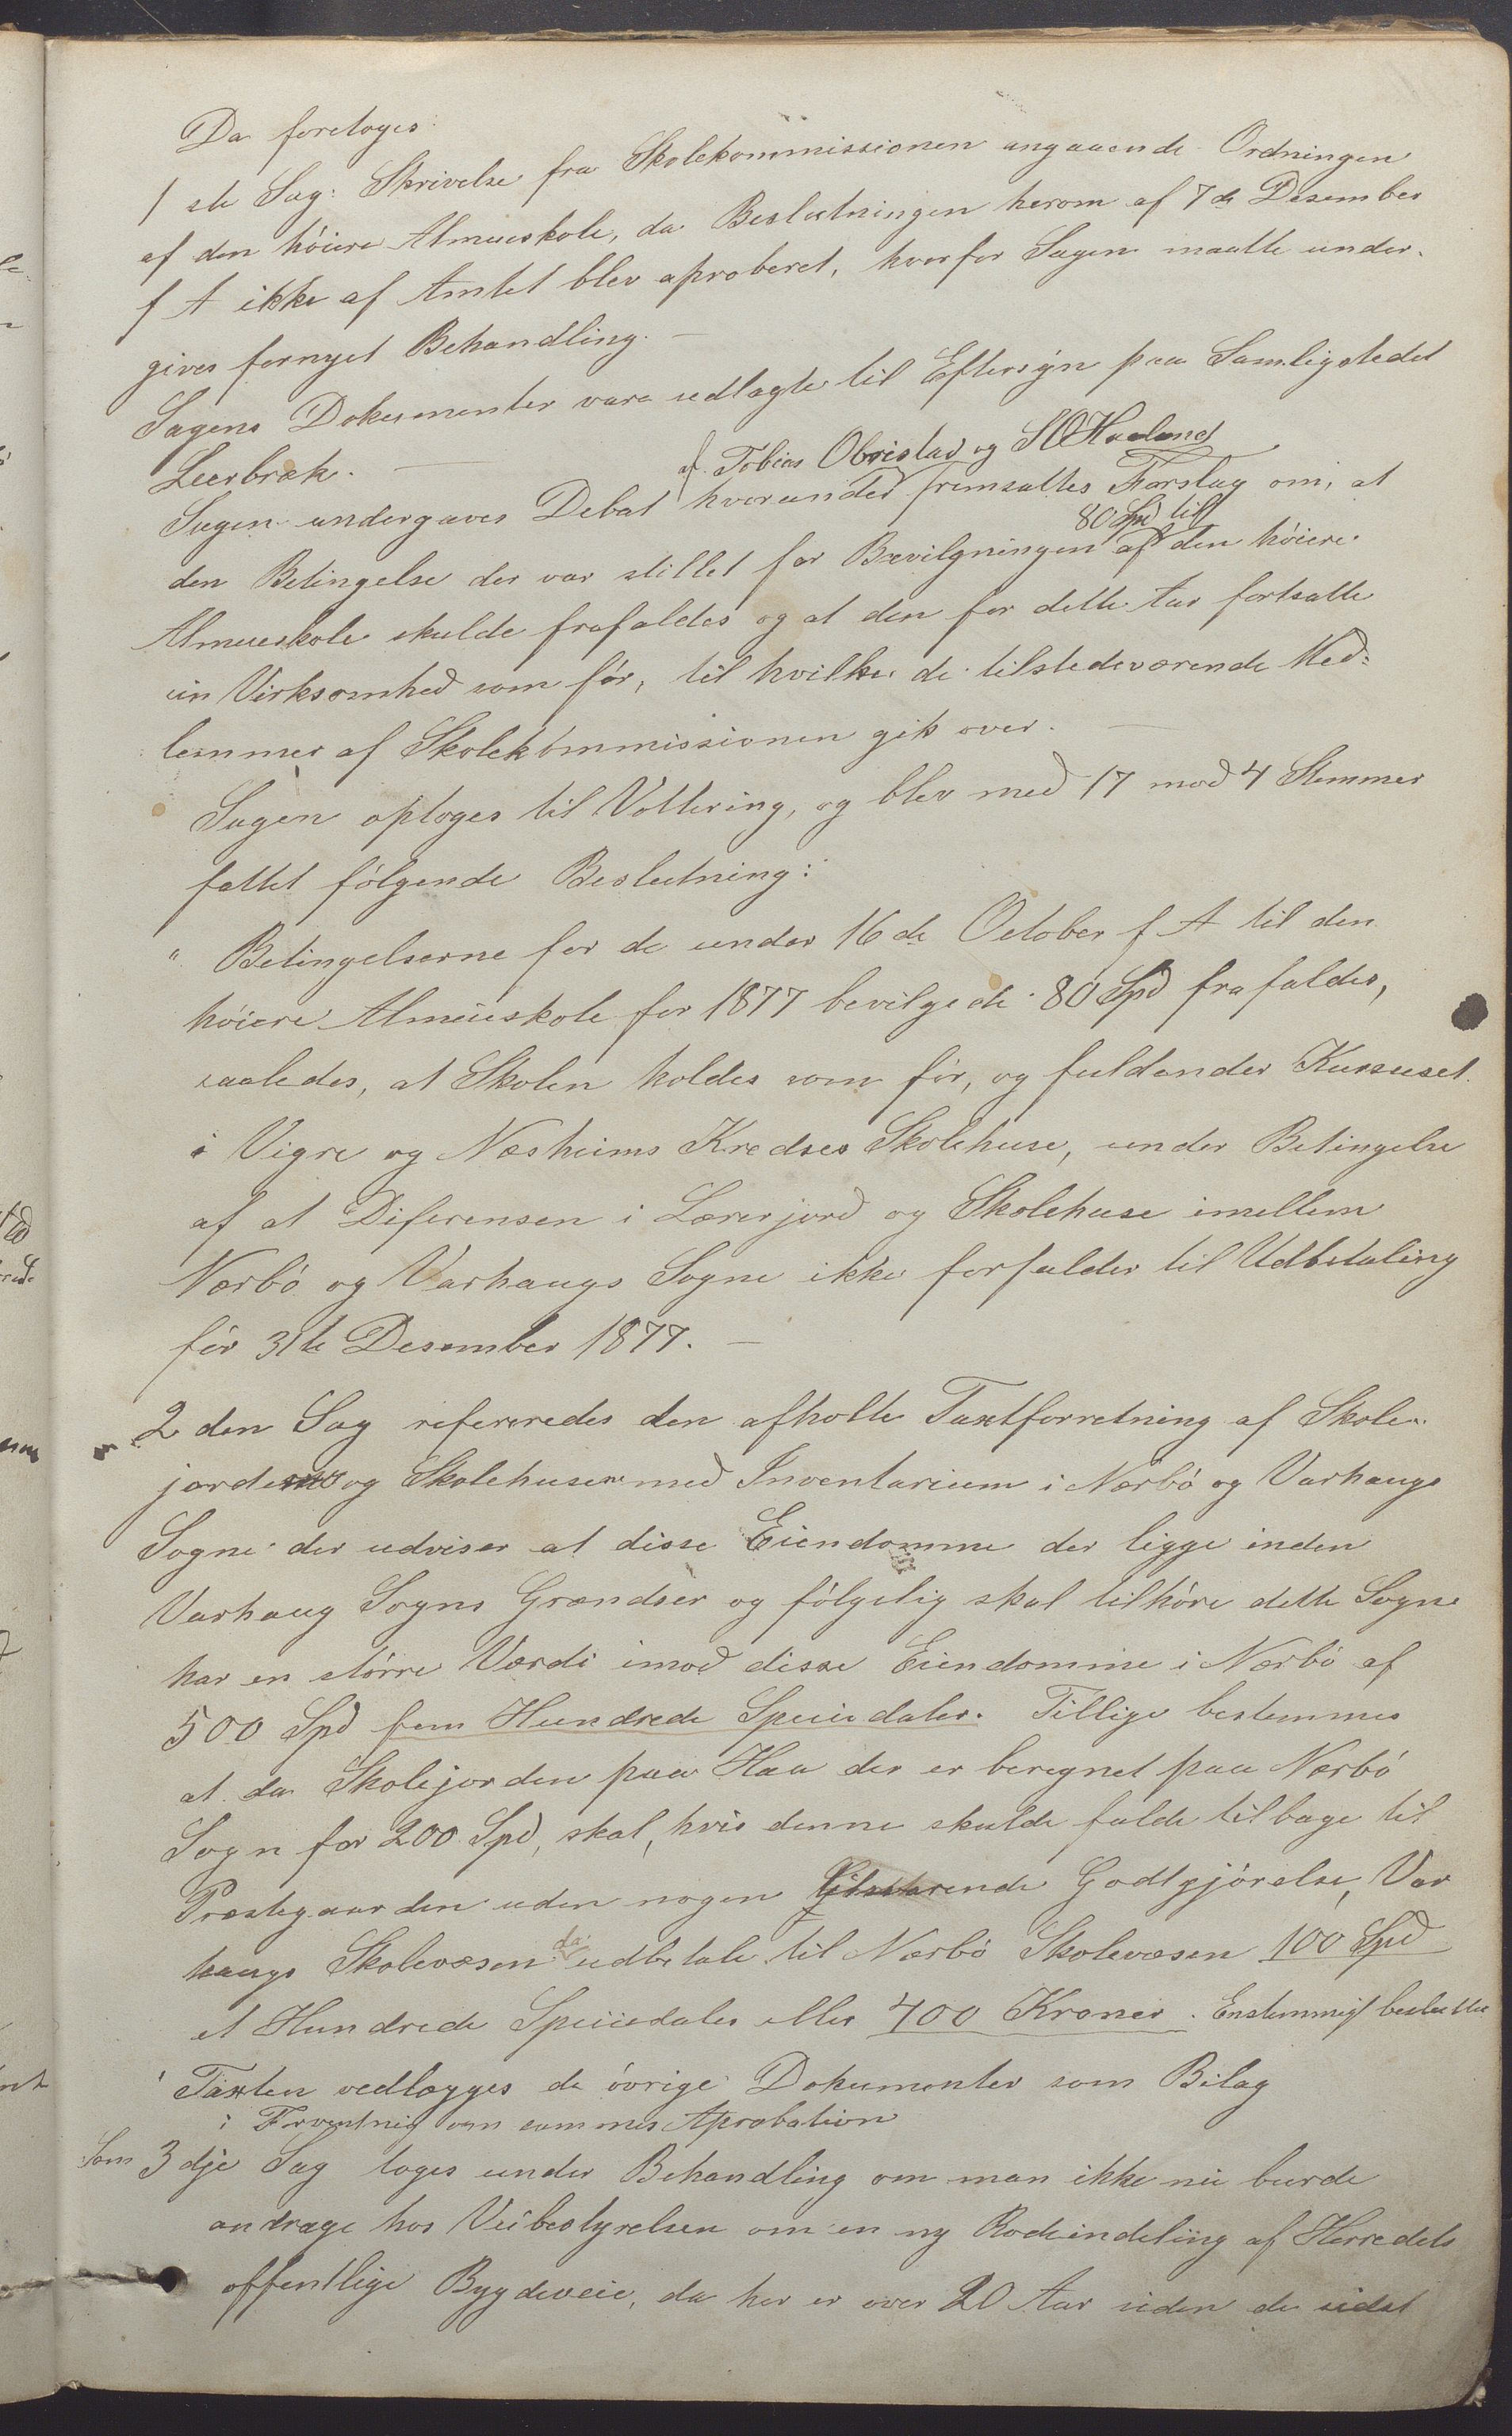 Da foretoges:
1 ste Sag: Skrivelse fra Skolekommissionen angaaende Ordningen
af den höiere Almueskole, da Beslutningen herom af 7 de Desember
f A ikke af Amtet blev aproberet, hvorfor Sagen maatte under-
gives fornyet Behandling. —
Sagens Dokumenter vare udlagte til Eftersyn paa Samligstedet
Leerbræk. —
af Tobias Obrestad og S O Haaland
Sagen undergaves Debat hvorunder fremsattes Forslag om, at
80 Spd til
den Betingelse der var stillet for Bevilgningen af den höiere
Almueskole skulde frafaldes og at den for dette Aar fortsatte
sin Virksomhed som för, til hvilke de tilstedeværende Med=
lemmer af Skolekommissionen gik over. —
Sagen optoges til Vottering, og blev med 17 mod 4 Stemmer
fattet fölgende Beslutning:
" Betingelserne for de under 16 de October f A til den
höiere Almueskole for 1877 bevilgede 80 Spd frafaldes,
saaledes, at Skolen holdes som för, og fuldender Kursuset
i Vigre og Næsheims Kredses Skolehuse, under Betingelse
af at Diferensen i Lærerjord og Skolehuse imellem
Nærbö og Varhaugs Sogne ikke forfalder til Udbetaling
för 31te Desember 1877. —
2 den Sag refereredes den afholte Taxtforretning af Skole-
jordene og Skolehusene med Inventarium i Nærbö og Varhaugs
Sogne der udviser at disse Eiendomme der ligge inden
Varhaug Sogns Grændser og fölgelig skal tilhöre dette Sogne
har en större Værdi imod disse Eiendomme i Nærbö af
500 Spd fem Hundrede Speciedaler. Tillige bestemmes
at da Skolejorden paa Haa der er beregnet paa Nærbö
Sogn for 200 Spd, skal, hvis denne skulde falde tilbage til
Præstegaarden uden nogen Godtgjörelse, Var
da
haugs Skolevæsen udbetale til Nærbö Skolevæsen 100 Spd
et Hundrede Speciedaler eller 400 Kroner. Enstemmigt besluttet
Taxten vedlægges de övrige Dokumenter som Bilag
i Forventnig om sammes Aprobation
Som 3 dje Sag toges under Behandling om man ikke nu burde
andrage hos Veibestyrelsen om en ny Rodeindeling af Herredets
offentlige Bygdeveie, da her er over 20 Aar siden de sidst